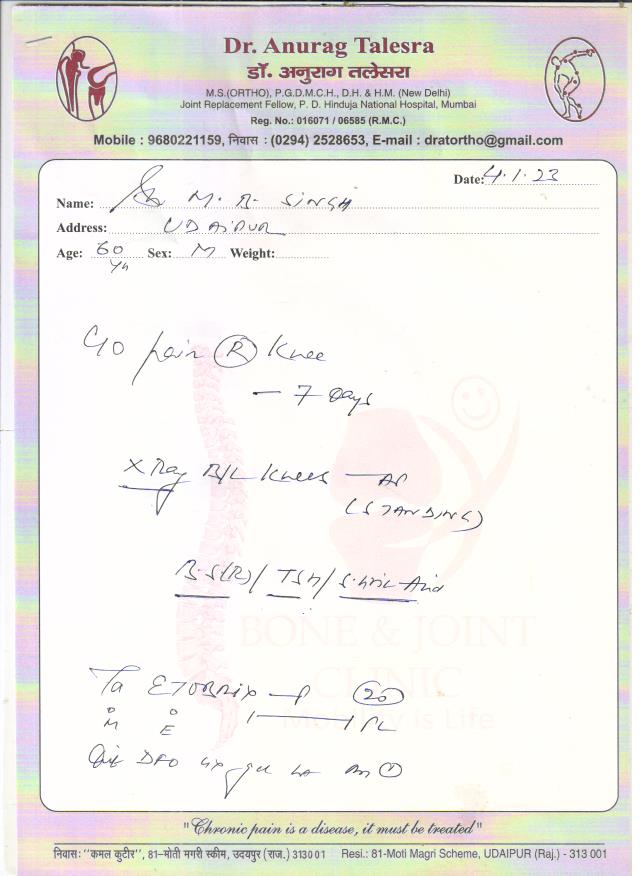 Dr. Anurag Talesra
डॉ. अनुराग तलेसरा
M.S.(ORTHO), P.G.D.M.C.H., D.H. & H.M. (New Delhi)
Joint Replacement Fellow, P. D. Hinduja National Hospital, Mumbai
Reg. No.: 016071 / 06585 (R.M.C.)
Mobile : 9680221159, निवास : (0294) 2528653, E-mail : dratortho@gmail.com
Date: 4.1.23
Name: M. B. SINGH
Address: UDAIPUR
Age: 60 Sex: M Weight:
Yrs
C/O pain (R) Knee
— 7 Days
X Ray B/L Knees — AP
(STANDING)
B-S(R)/ TSH/ S. Uric Acid
BONE & JOINT
CLINIC
Mobility is Life
Ta ETOBRIX-P (20)
M E
"Chronic pain is a disease, it must be treated"
निवास: "कमल कुटीर", 81-मोती मगरी स्कीम, उदयपुर (राज.) 313001 Resi.: 81-Moti Magri Scheme, UDAIPUR (Raj.) - 313 001